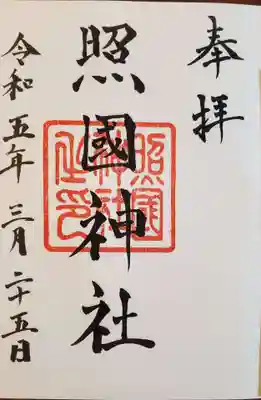 奉拝
照國神社
照國神社之印
令和五年三月二十五日